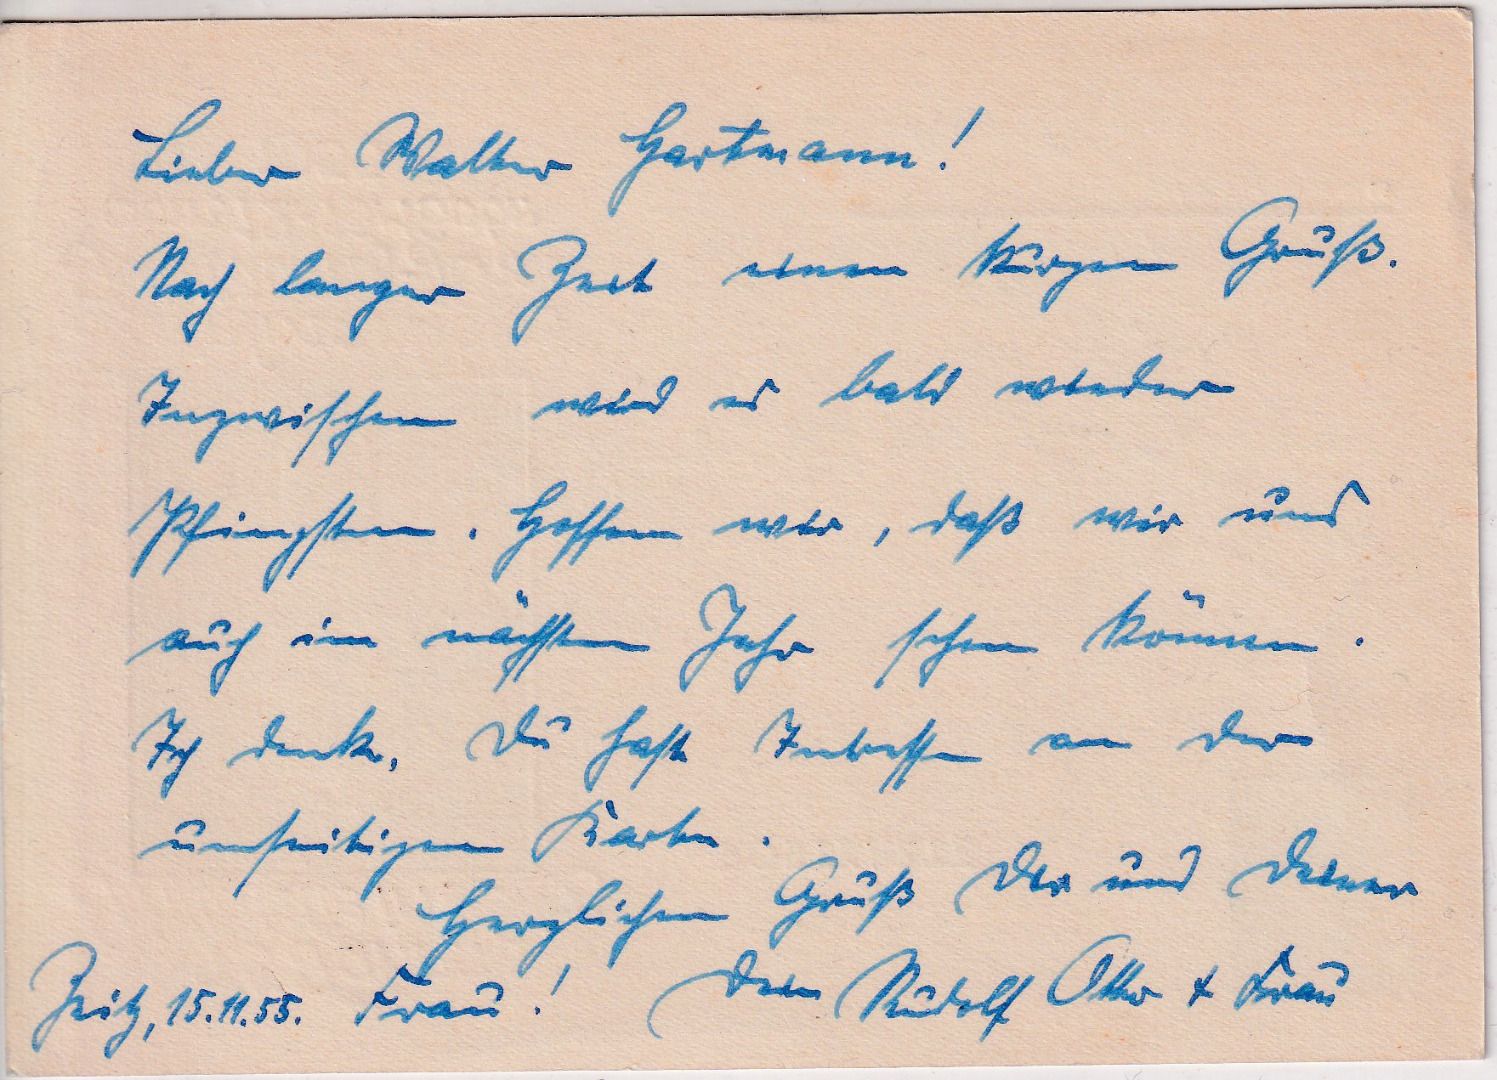 Lieber Walter Hartmann!
Nach langer Zeit einen kurzen Gruß.
Inzwischen wird es bald wieder
Pfingsten. Hoffen wir, daß wir uns
auch im nächsten Jahr sehen können.
Ich denke, Du hast Interesse an der
umseitigen Karte.
Herzlichen Gruß Dir und Deiner
Zeitz, 15.11.55. Frau! Dein Rudolf Otto + Frau